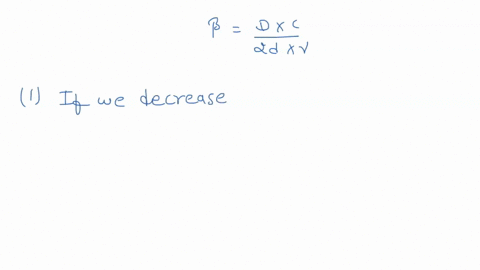 β = D x c / 2d x ν
(1) If we decrease